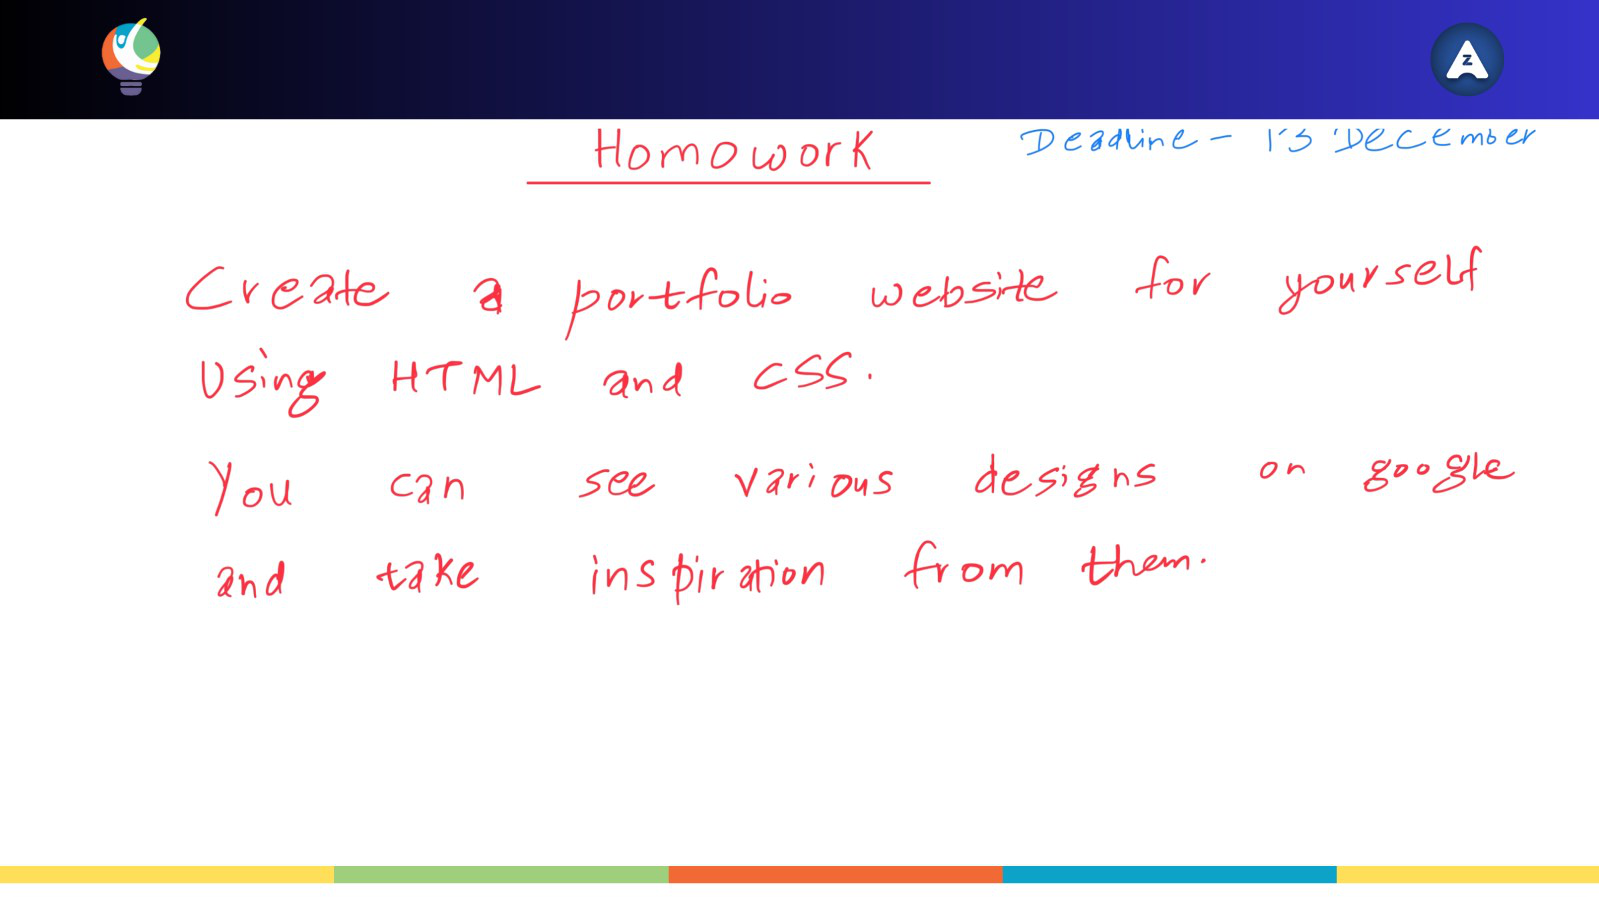 Homowork
Deadline - 13 December
Create a portfolio website for yourself
Using HTML and CSS.
You can see various designs on google
and take inspiration from them.
Z